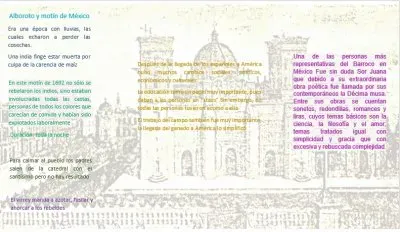 Alboroto y motín de México
Era una época con lluvias, las
cuales echaron a perder las
cosechas.
Una india finge estar muerta por
culpa de la carencia de maíz
En este motín de 1692 no sólo se
rebelaron los indios, sino estaban
involucradas todas las castas,
personas de todos los colores que
carecían de comida y habían sido
explotados laboralmente
Duración: toda la noche
Para calmar al pueblo los padres
salen de la catedral con el
santísimo pero no hay resultado
El virrey manda a azotar, fusilar y
ahorcar a los rebeldes
Después de llegada de los españoles a América
hubo muchos cambios sociales, políticos,
económicos y culturales
La educación tiene un papel muy importante, pues
daban a las personas un "status". Sin embargo, no
todas las personas tenían el acceso a esta
El trabajo del campo también fue muy importante,
la llegada del ganado a América lo simplificó
Una de las personas más
representativas del Barroco en
México Fue sin duda Sor Juana
que debido a su extraordinaria
obra poética fue llamada por sus
contemporáneos la Décima musa.
Entre sus obras se cuentan
sonetos, redondillas, romances y
liras, cuyos temas básicos son la
ciencia, la filosofía y el amor;
temas tratados igual con
simplicidad y gracia que con
excesiva y rebuscada complejidad